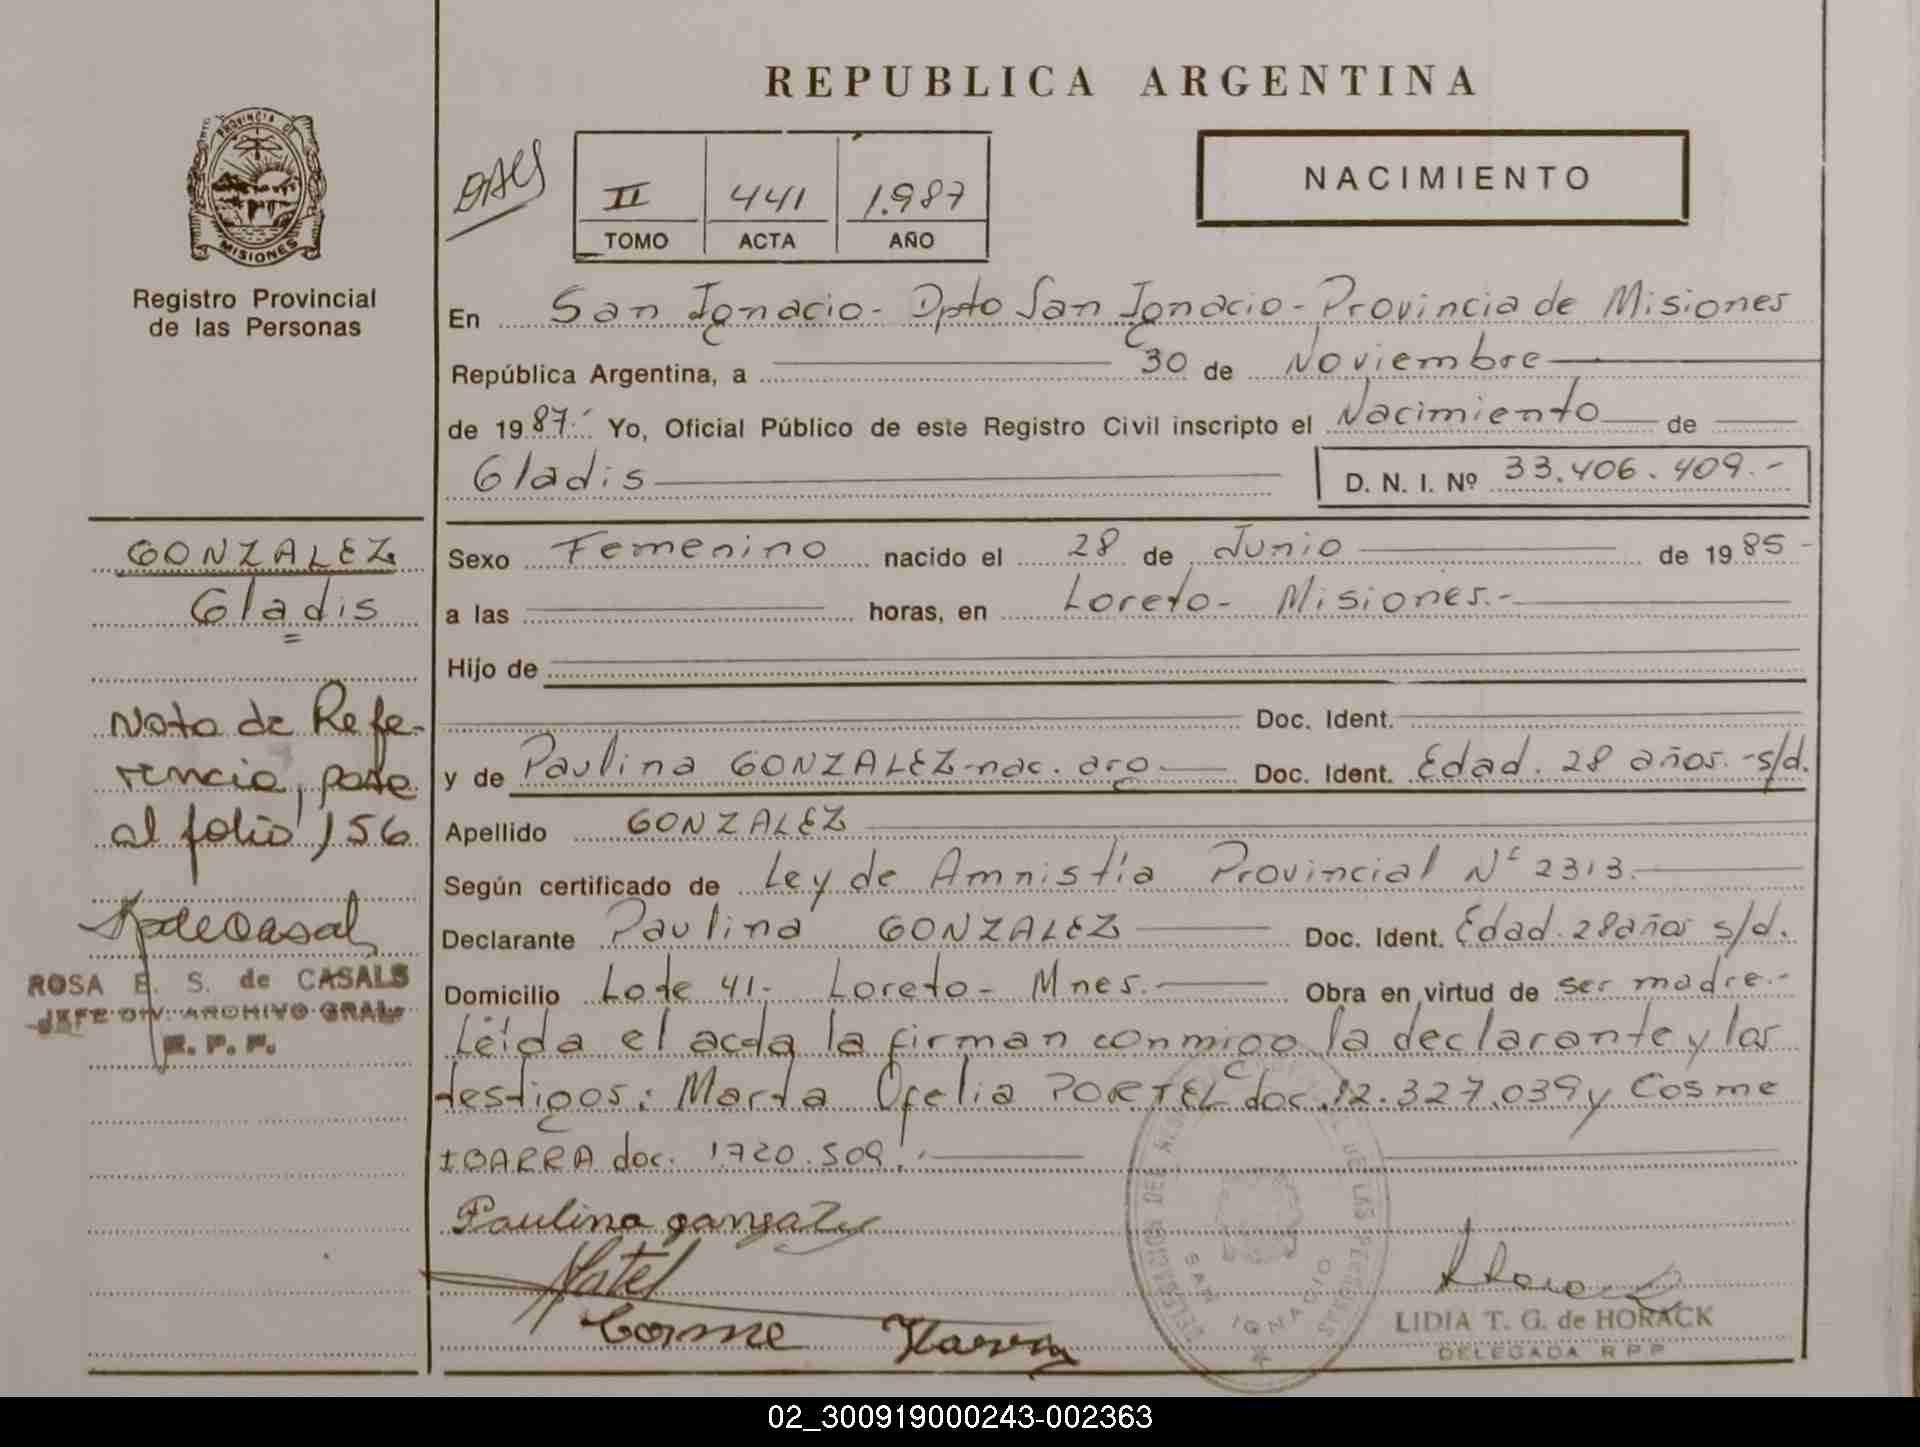 REPUBLICA ARGENTINA
PROVINCIA DE
MISIONES
Registro Provincial
de las Personas
II 441 1.987
TOMO ACTA AÑO
NACIMIENTO
En San Ignacio- Dpto San Ignacio- Provincia de Misiones
República Argentina, a 30 de Noviembre
de 1987.- Yo, Oficial Público de este Registro Civil inscripto el Nacimiento de
Gladis D. N. I. Nº 33.406.409.-
GONZALEZ
Gladis
Nota de Refe-
rencia, pase
al folio 156
ROSA E. S. de CASALS
JEFE DIV. ARCHIVO GRAL.
R. P. P.
Sexo Femenino nacido el 28 de Junio de 1985-
a las horas, en Loreto- Misiones.-
Hijo de
Doc. Ident.
y de Paulina GONZALEZ-nac. arg Doc. Ident. Edad. 28 años.-s/d.
Apellido GONZALEZ
Según certificado de Ley de Amnistía Provincial Nº 2313.
Declarante Paulina GONZALEZ Doc. Ident. Edad. 28 años s/d.
Domicilio Lote 41- Loreto- Mnes. Obra en virtud de ser madre.-
Leída el acta la firman conmigo la declarante y los
testigos: Marta Ofelia PORTEL doc. 12.327.039 y Cosme
IBARRA doc. 1720.509.-
Paulina gonzalez
Cosme Ibarra
DELEGACION DEL REGISTRO PROVINCIAL DE LAS PERSONAS
SAN IGNACIO
LIDIA T. G. de HORACK
DELEGADA R P P
02_300919000243-002363